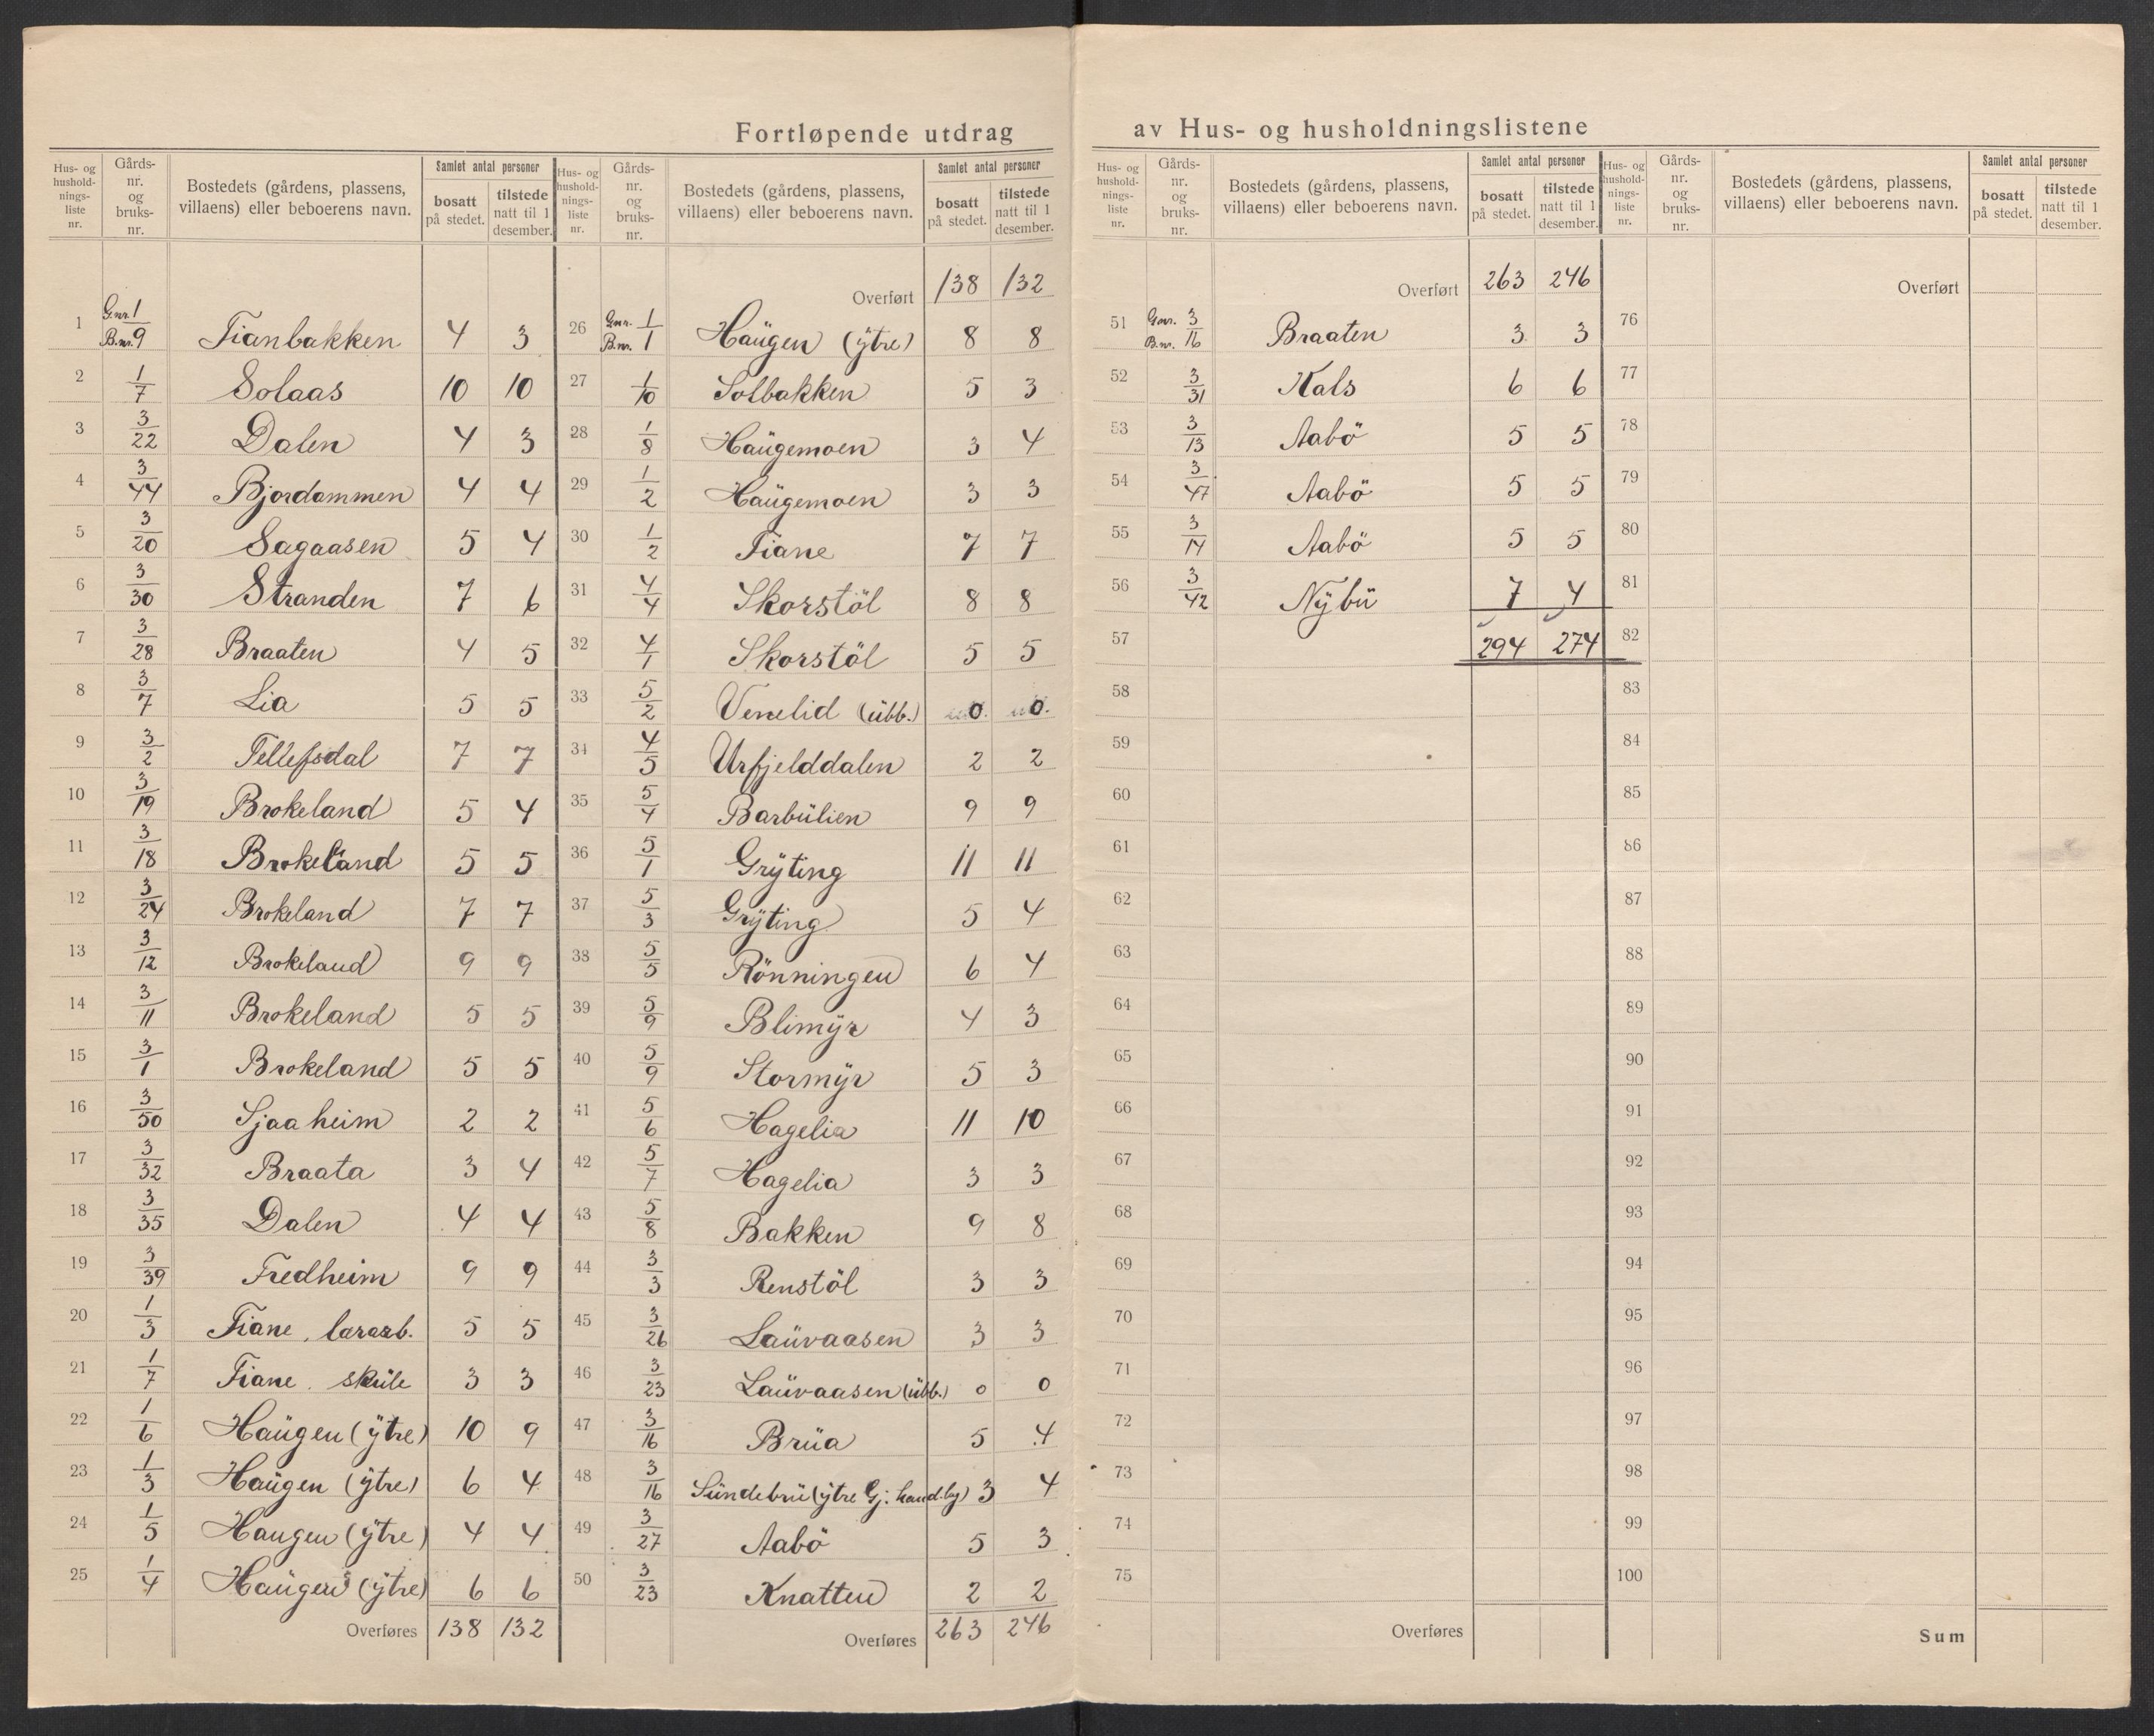 Fortløpende utdrag av Hus- og husholdningslistene
Hus- og husholdnings-liste nr. | Gårds-nr. og bruks-nr. | Bostedets (gårdens, plassens, villaens) eller beboerens navn. | Samlet antal personer | bosatt på stedet. | tilstede natt til 1 desember.
1 | G.nr. 1 / B.nr. 9 | Tianbakken | 4 | 3
2 | 1/7 | Solaas | 10 | 10
3 | 3/22 | Dalen | 4 | 3
4 | 3/44 | Bjordammen | 4 | 4
5 | 3/20 | Sagaasen | 5 | 4
6 | 3/30 | Stranden | 7 | 6
7 | 3/28 | Braaten | 4 | 5
8 | 3/7 | Lia | 5 | 5
9 | 3/2 | Tellefsdal | 7 | 7
10 | 3/19 | Brokeland | 5 | 4
11 | 3/18 | Brokeland | 5 | 5
12 | 3/24 | Brokeland | 7 | 7
13 | 3/12 | Brokeland | 9 | 9
14 | 3/11 | Brokeland | 5 | 5
15 | 3/1 | Brokeland | 5 | 5
16 | 3/50 | Sjaaheim | 2 | 2
17 | 3/32 | Braata | 3 | 4
18 | 3/35 | Dalen | 4 | 4
19 | 3/39 | Fredheim | 9 | 9
20 | 1/3 | Tiane, lærarb. | 5 | 5
21 | 1/7 | Tiane, skŭle | 3 | 3
22 | 1/6 | Haŭgen (ÿtre) | 10 | 9
23 | 1/3 | Haŭgen (ÿtre) | 6 | 4
24 | 1/5 | Haugen (ÿtre) | 4 | 4
25 | 1/4 | Haŭgen (ÿtre) | 6 | 6
Overføres | 138 | 132
Hus- og husholdnings-liste nr. | Gårds-nr. og bruks-nr. | Bostedets (gårdens, plassens, villaens) eller beboerens navn. | Samlet antal personer | bosatt på stedet. | tilstede natt til 1 desember.
Overført | 138 | 132
26 | Gnr. 1 / B.nr. 1 | Haŭgen (ÿtre) | 8 | 8
27 | 1/10 | Solbakken | 5 | 3
28 | 1/8 | Haŭgemoen | 3 | 4
29 | 1/2 | Haŭgemoen | 3 | 3
30 | 1/2 | Tiane | 7 | 7
31 | 4/4 | Skorstöl | 8 | 8
32 | 4/1 | Skorstöl | 5 | 5
33 | 5/2 | Venelid (ŭbb.) | 0 | 0
34 | 4/5 | Urfjelddalen | 2 | 2
35 | 5/4 | Barbŭlien | 9 | 9
36 | 5/1 | Grÿting | 11 | 11
37 | 5/3 | Grÿting | 5 | 4
38 | 5/5 | Rönningen | 6 | 4
39 | 5/9 | Blimÿr | 4 | 3
40 | 5/9 | Stormÿr | 5 | 3
41 | 5/6 | Hagelia | 11 | 10
42 | 5/7 | Hagelia | 3 | 3
43 | 5/8 | Bakken | 9 | 8
44 | 3/3 | Renstöl | 3 | 3
45 | 3/26 | Laŭvaasen | 3 | 3
46 | 3/23 | Laŭvaasen (ŭbb.) | 0 | 0
47 | 3/16 | Brŭa | 5 | 4
48 | 3/16 | Sŭndebrŭ (ÿtre Gj. handly) | 3 | 4
49 | 3/27 | Aabö | 5 | 3
50 | 3/23 | Knatten | 2 | 2
Overføres | 263 | 246
Hus- og husholdnings-liste nr. | Gårds-nr. og bruks-nr. | Bostedets (gårdens, plassens, villaens) eller beboerens navn. | Samlet antal personer | bosatt på stedet. | tilstede natt til 1 desember.
Overført | 263 | 246
51 | Gnr. 3 / B.nr. 16 | Braaten | 3 | 3
52 | 3/31 | Kals | 6 | 6
53 | 3/13 | Aabö | 5 | 5
54 | 3/47 | Aabö | 5 | 5
55 | 3/14 | Aabö | 5 | 5
56 | 3/42 | Nÿbŭ | 7 | 4
57 | 294 | 274
58
59
60
61
62
63
64
65
66
67
68
69
70
71
72
73
74
75
Overføres
Hus- og husholdnings-liste nr. | Gårds-nr. og bruks-nr. | Bostedets (gårdens, plassens, villaens) eller beboerens navn. | Samlet antal personer | bosatt på stedet. | tilstede natt til 1 desember.
Overført
76
77
78
79
80
81
82
83
84
85
86
87
88
89
90
91
92
93
94
95
96
97
98
99
100
Sum